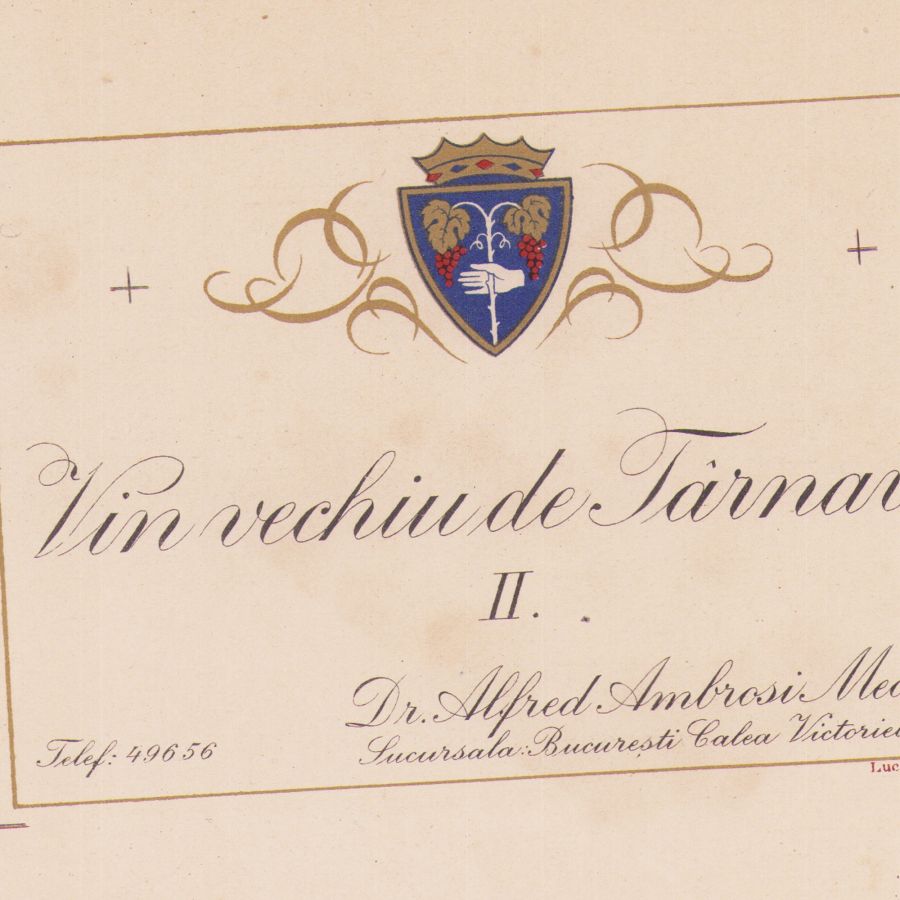 Vin vechiu de Târnav
II.
Dr. Alfred Ambrosi Med
Telef: 49656
Sucursala: București Calea Victoriei
Luc